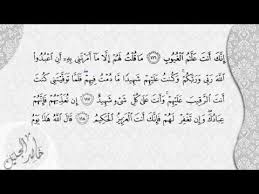 إِنَّكَ أَنتَ عَلَّٰمُ ٱلْغُيُوبِ ١١٦ مَا قُلْتُ لَهُمْ إِلَّا مَآ أَمَرْتَنِى بِهِۦٓ أَنِ ٱعْبُدُوا۟
ٱللَّهَ رَبِّى وَرَبَّكُمْ وَكُنتُ عَلَيْهِمْ شَهِيدًا مَّا دُمْتُ فِيهِمْ فَلَمَّا تَوَفَّيْتَنِى كُنتَ
أَنتَ ٱلرَّقِيبَ عَلَيْهِمْ وَأَنتَ عَلَىٰ كُلِّ شَىْءٍ شَهِيدٌ ١١٧ إِن تُعَذِّبْهُمْ فَإِنَّهُمْ
عِبَادُكَ وَإِن تَغْفِرْ لَهُمْ فَإِنَّكَ أَنتَ ٱلْعَزِيزُ ٱلْحَكِيمُ ١١٨ قَالَ ٱللَّهُ هَٰذَا يَوْمُ
خالد الجليل